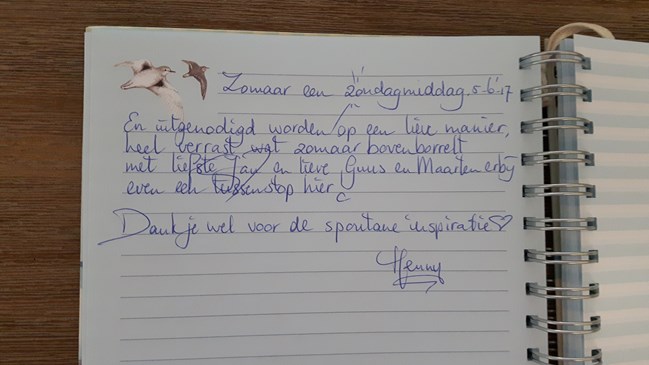 Zomaar een zondagmiddag. 5-6-17
En uitgenodigd worden op een lieve manier,
heel verrast wat zomaar bovenborrelt
met liefste Jay en lieve Guus en Maarten erbij
even een tussenstop hier
Dankje wel voor de spontane inspiratie♡
Henny